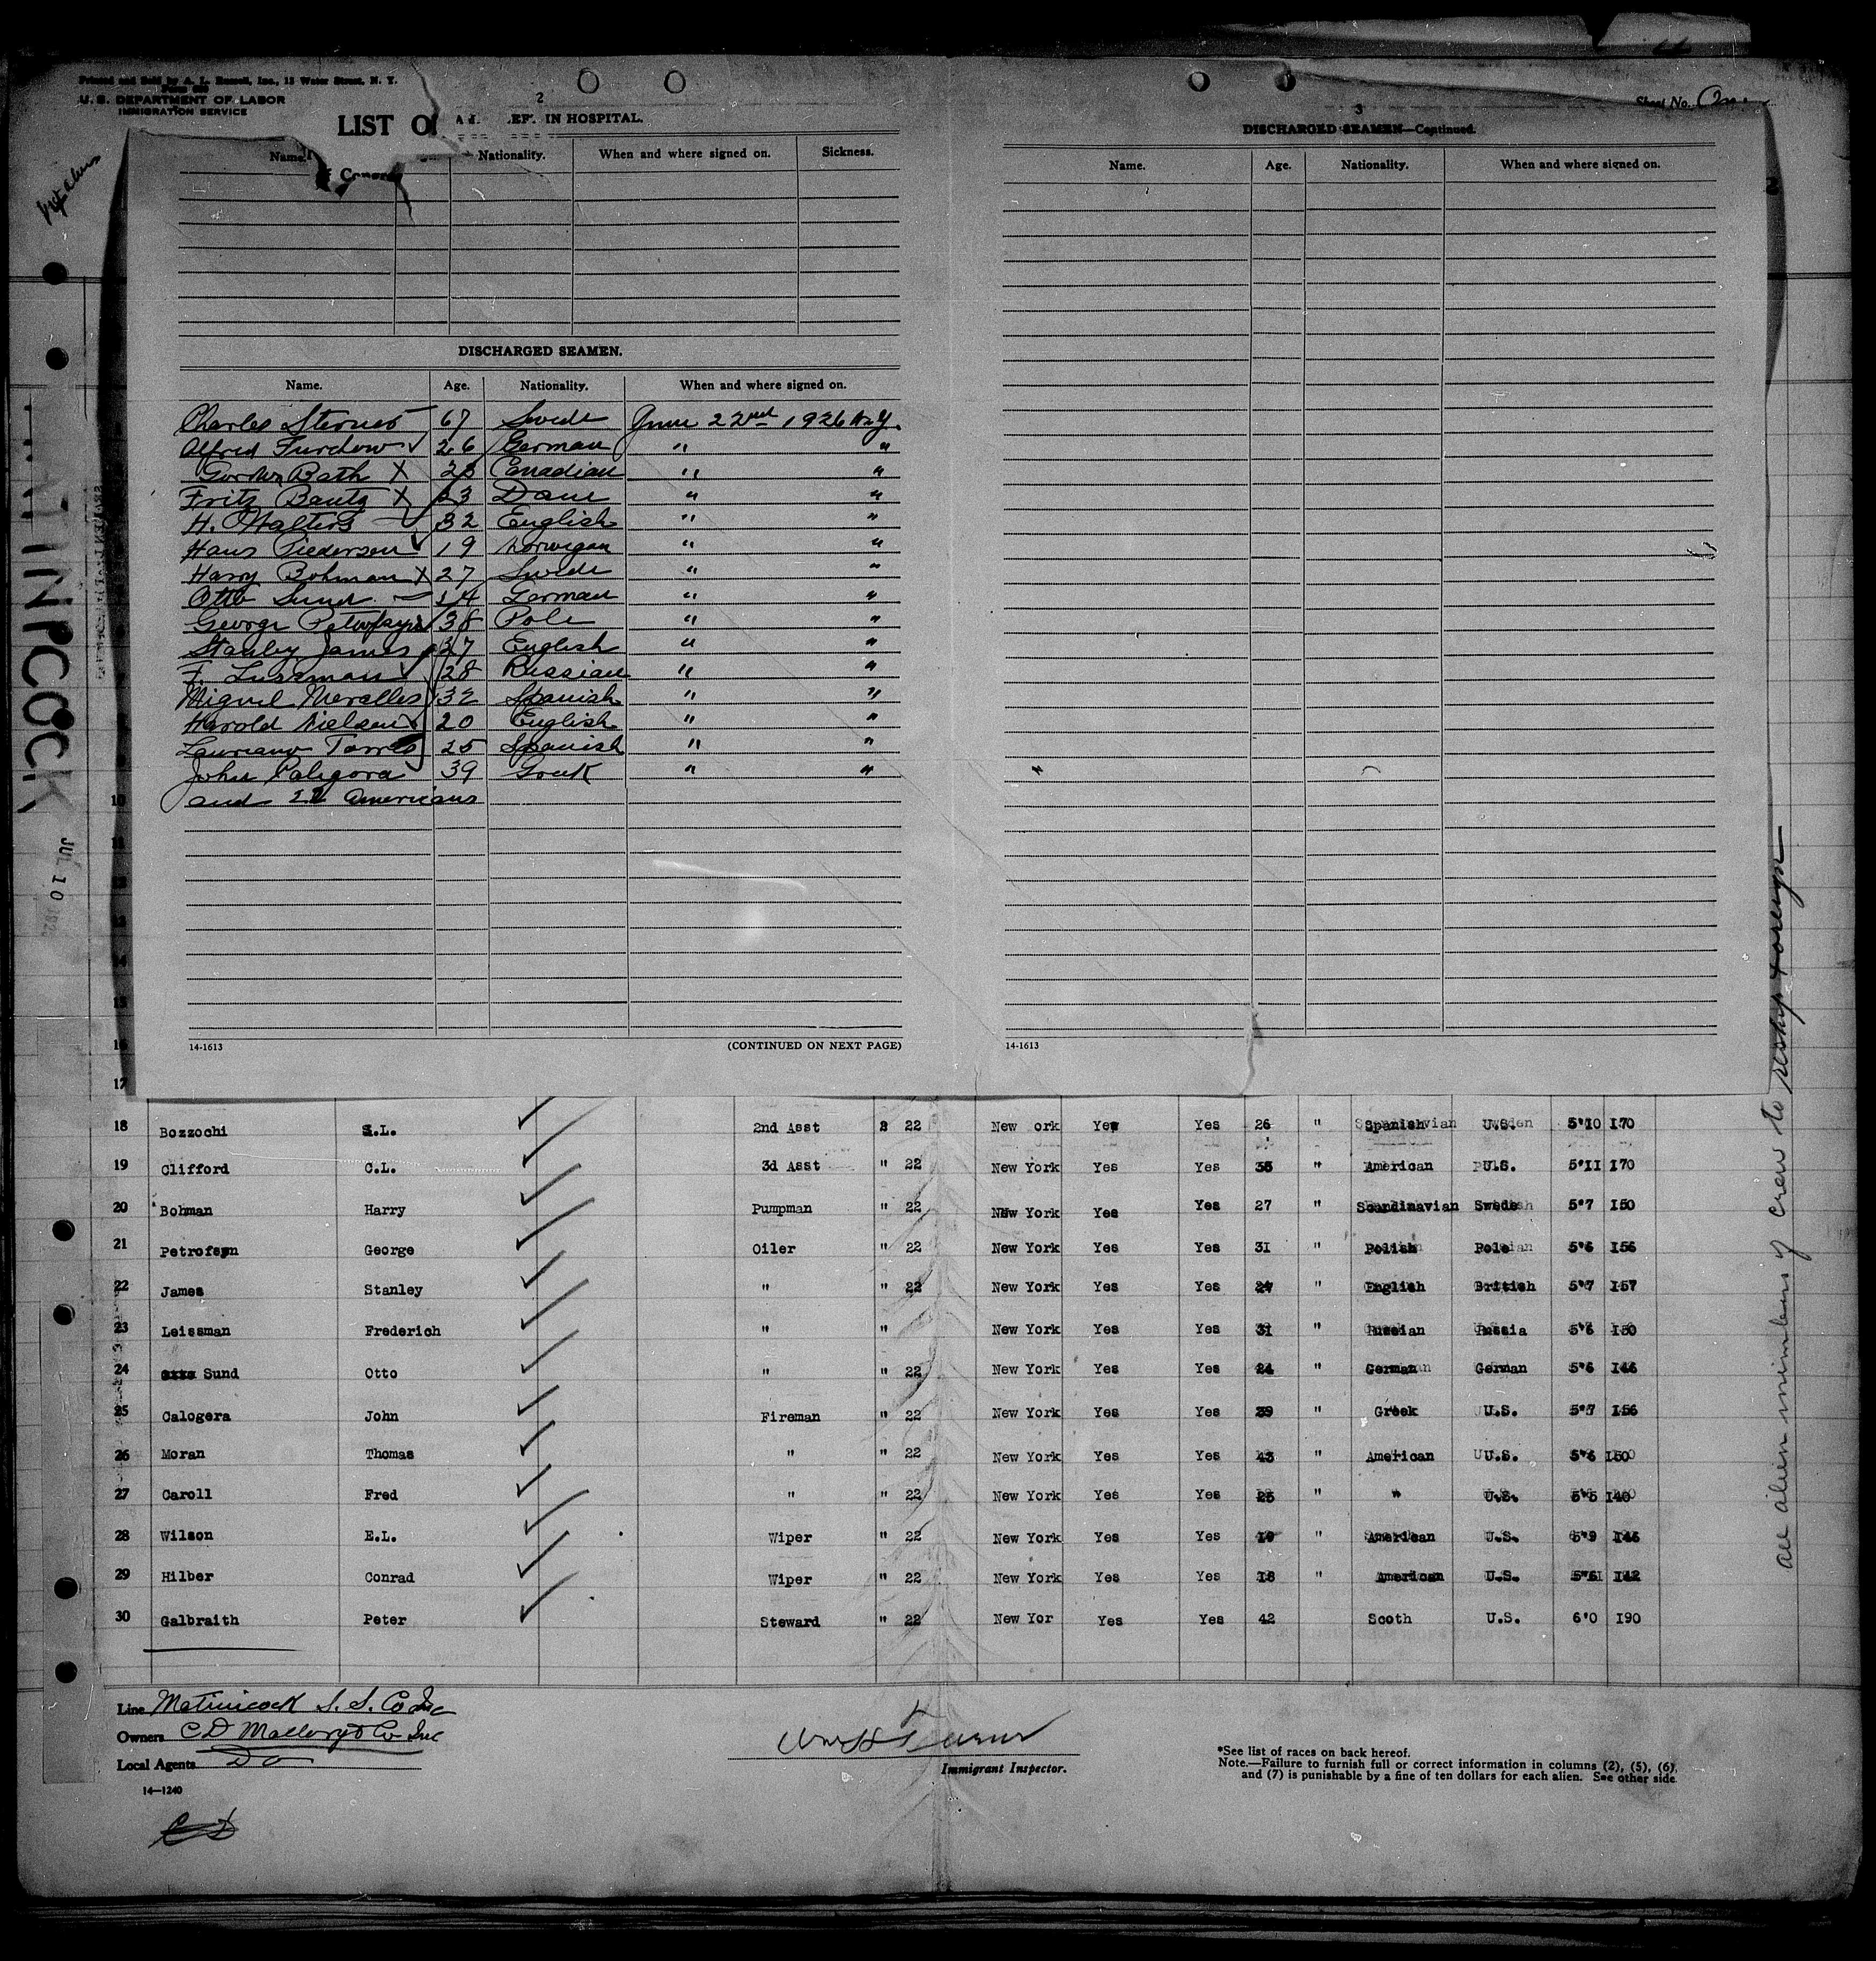 Printed and Sold by A. L. Russell, Inc., 11 Water Street, N. Y.
U. S. DEPARTMENT OF LABOR
IMMIGRATION SERVICE
LIST O
2
IN HOSPITAL.
Name. Nationality. When and where signed on. Sickness.
DISCHARGED SEAMEN.
Name. Age. Nationality. When and where signed on.
Charles 67 Swede June 22nd 1926 N.Y.
Alfred Furchow 26 German " "
Bath X 23 Canadian " "
Fritz Bautz X 23 Dane " "
H. Walters 32 English " "
Hans Piedersen 19 Norwegan " "
Harry Bohman X 27 Swede " "
Otto Sund German " "
George 38 Pole " "
Stanley James 27 English " "
F. 28 Russian " "
Miguel Meralles 32 Spanish " "
Harold Nielsen 20 English " "
Lauriano Torres 25 Spanish " "
John Caligora 39 Greek " "
and 22 Americans
14-1613 (CONTINUED ON NEXT PAGE)
Sheet No. One
3
DISCHARGED SEAMEN—Continued.
Name. Age. Nationality. When and where signed on.
14-1613
INPCOCK
JUL 10
10
11
13
14
15
16
17
18 Bozzochi L. 2nd Asst 22 New ork Yes Yes 26 " Spanish U.S. 5'10 170
19 Clifford C.L. 3d Asst " 22 New York Yes Yes 35 " American U.S. 5'11 170
20 Bohman Harry Pumpman " 22 New York Yes Yes 27 " Scandinavian Swede 5'7 150
21 George Oiler " 22 New York Yes Yes 31 " Polish Pole 5'6 156
22 James Stanley " " 22 New York Yes Yes 27 " English British 5'7 157
23 Leissman Frederich " " New York Yes Yes 31 " Russian Russia 5'6 150
24 Sund Otto " " 22 New York Yes Yes 24 " German German 5'6 146
25 Calogera John Fireman " 22 New York Yes Yes 39 " Greek U.S. 5'7 156
26 Moran Thomas " " 22 New York Yes Yes 43 " American U.S. 5'6 150
27 Caroll Fred " " 22 New York Yes Yes 25 " " U.S. 5'5 140
28 Wilson E.L. Wiper " 22 New York Yes Yes 19 " American U.S. 5'9 146
29 Hilber Conrad Wiper " 22 New York Yes Yes 18 " American U.S. 142
30 Galbraith Peter Steward " 22 New Yor Yes Yes 42 Scoth U.S. 6'0 190
all alien members of crew to reship foreign
Line Matinicock S. S. Co Inc
Owners C D Mallory & Co Inc
Local Agents Do
14—1240
Immigrant Inspector.
*See list of races on back hereof.
Note.—Failure to furnish full or correct information in columns (2), (5), (6),
and (7) is punishable by a fine of ten dollars for each alien. See other side